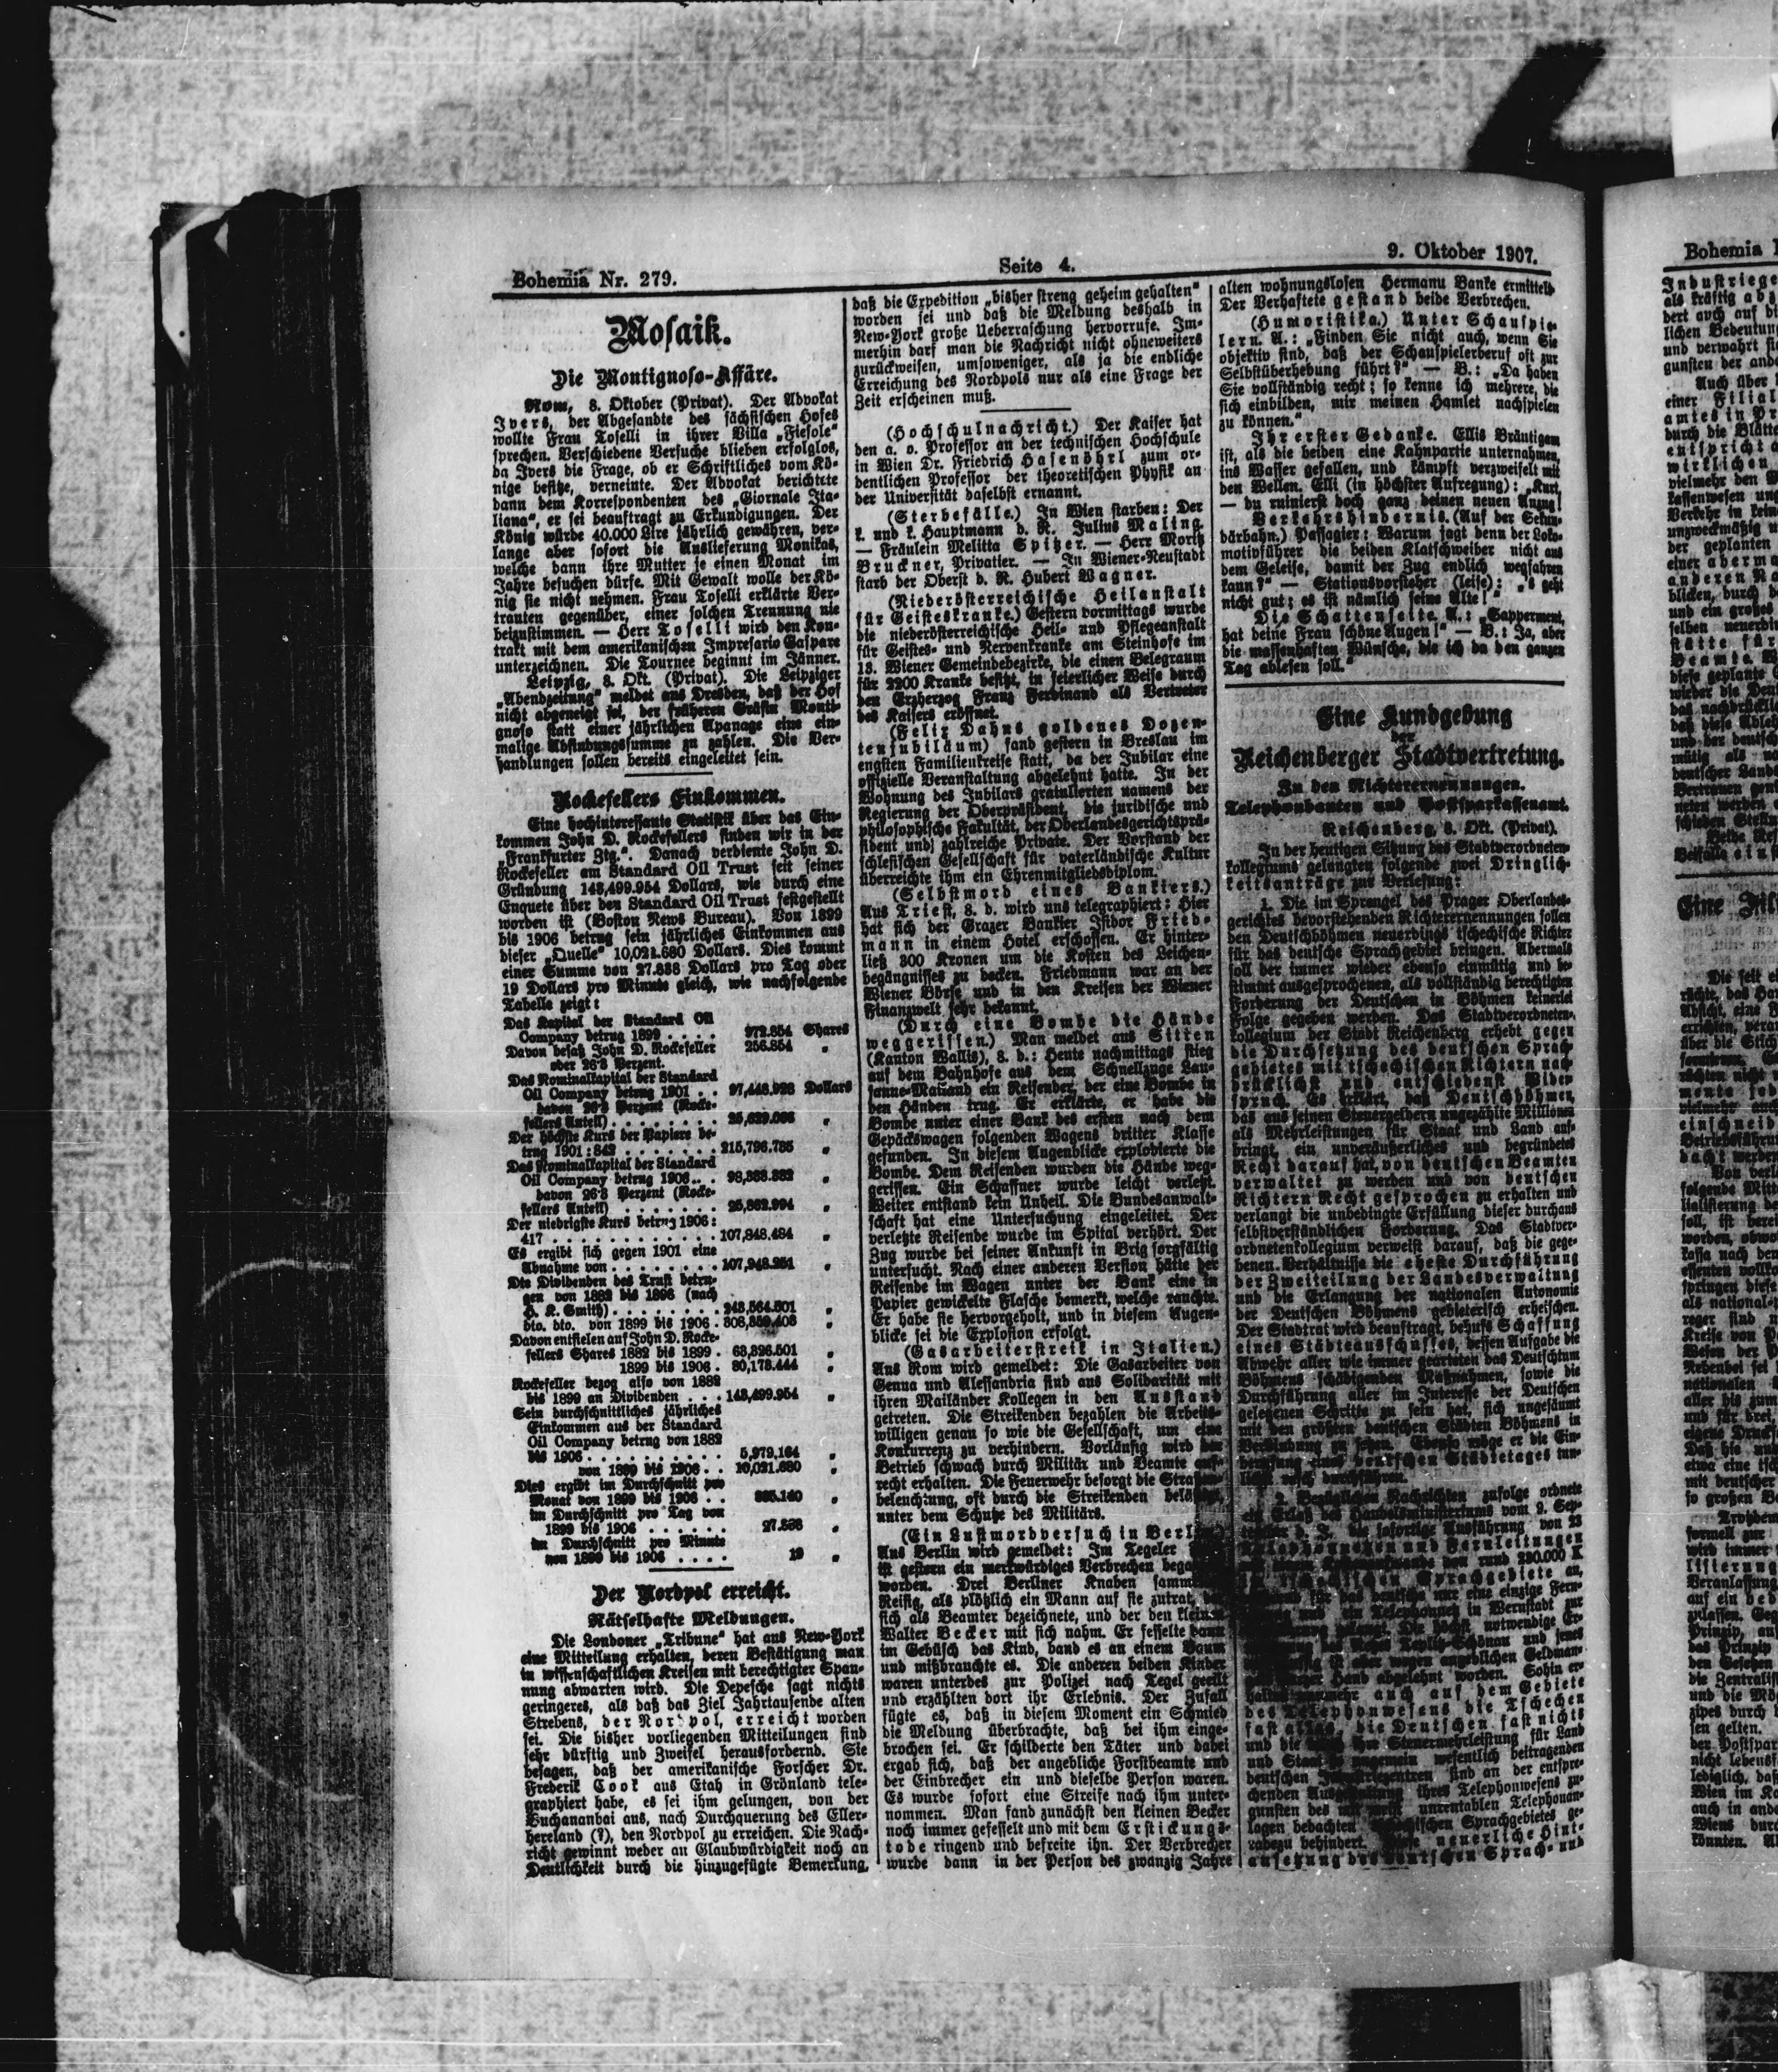 Bohemia Nr. 279.
Seite 4.
9. Oktober 1907.
Mosaik.
Die Montignoso-Affäre.
Rom, 8. Oktober (Privat). Der Advokat
Ivers, der Abgesandte des sächsischen Hofes
wollte Frau Toselli in ihrer Villa „Fiesole"
sprechen. Verschiedene Versuche blieben erfolglos,
da Ivers die Frage, ob er Schriftliches vom Kö-
nige besitze, verneinte. Der Advokat berichtete
dann dem Korrespondenten des „Giornale Ita-
liana", er sei beauftragt zu Erkundigungen. Der
König würde 40.000 Lire jährlich gewähren, ver-
lange aber sofort die Auslieferung Monikas,
welche dann ihre Mutter je einen Monat im
Jahre besuchen dürfe. Mit Gewalt wolle der Kö-
nig sie nicht nehmen. Frau Toselli erklärte Ver-
trauten gegenüber, einer solchen Trennung nie
beizustimmen. — Herr Toselli wird den Kon-
trakt mit dem amerikanischen Impresario Gaspare
unterzeichnen. Die Tournee beginnt im Jänner.
Leipzig, 8. Okt. (Privat). Die Leipziger
„Abendzeitung" meldet aus Dresden, daß der Hof
nicht abgeneigt sei, der früheren Gräfin Monti-
gnoso statt einer jährlichen Apanage eine ein-
malige Abfindungssumme zu zahlen. Die Ver-
handlungen sollen bereits eingeleitet sein.
Rockefellers Einkommen.
Eine hochinteressante Statistik über das Ein-
kommen John D. Rockefellers finden wir in der
„Frankfurter Ztg.". Danach verdiente John D.
Rockefeller am Standard Oil Trust seit seiner
Gründung 143,499.954 Dollars, wie durch eine
Enquete über den Standard Oil Trust festgestellt
worden ist (Boston News Bureau). Von 1899
bis 1906 betrug sein jährliches Einkommen aus
dieser „Quelle" 10,021.680 Dollars. Dies kommt
einer Summe von 27.838 Dollars pro Tag oder
19 Dollars pro Minute gleich, wie nachfolgende
Tabelle zeigt:
Das Kapital der Standard Oil
Company betrug 1899 . . . . 972.854 Shares
Davon besaß John D. Rockefeller 256.854 „
oder 26·3 Perzent.
Das Nominalkapital der Standard
Oil Company betrug 1901 . . 97,448.928 Dollars
davon 26·3 Perzent (Rocke-
fellers Anteil) . . . . . . . . 25,629.066 „
Der höchste Kurs der Papiere be-
trug 1901: 842 . . . . . . . 215,796.735 „
Das Nominalkapital der Standard
Oil Company betrug 1906 . . 98,388.382 „
davon 26·3 Perzent (Rocke-
fellers Anteil) . . . . . . . 25,862.994 „
Der niedrigste Kurs betrug 1906:
417 . . . . . . . . . . . . 107,848.484 „
Es ergibt sich gegen 1901 eine
Abnahme von . . . . . . . . 107,948.251 „
Die Dividenden des Trust betru-
gen von 1882 bis 1898 (nach
H. K. Smith) . . . . . . . . 243,564.501 „
dto. dto. von 1899 bis 1906 . 308,359.403 „
Davon entfielen auf John D. Rocke-
fellers Shares 1882 bis 1899 . 63,326.501 „
1899 bis 1906 . 80,173.444 „
Rockefeller bezog also von 1882
bis 1899 an Dividenden . . . 143,499.954 „
Sein durchschnittliches jährliches
Einkommen aus der Standard
Oil Company betrug von 1882
bis 1906 . . . . . . . . . . 5,979.164 „
von 1899 bis 1906 . . 10,021.680 „
Dies ergibt im Durchschnitt pro
Monat von 1899 bis 1906 . . 835.140 „
im Durchschnitt pro Tag von
1899 bis 1906 . . . . . . 27.838 „
im Durchschnitt pro Minute
von 1899 bis 1906 . . . . 19 „
Der Nordpol erreicht.
Rätselhafte Meldungen.
Die Londoner „Tribune" hat aus New-York
eine Mitteilung erhalten, deren Bestätigung man
in wissenschaftlichen Kreisen mit berechtigter Span-
nung abwarten wird. Die Depesche sagt nichts
geringeres, als daß das Ziel Jahrtausende alten
Strebens, der Nordpol, erreicht worden
sei. Die bisher vorliegenden Mitteilungen sind
sehr dürftig und Zweifel herausfordernd. Sie
besagen, daß der amerikanische Forscher Dr.
Frederik Cook aus Etah in Grönland tele-
graphiert habe, es sei ihm gelungen, von der
Buchananbai aus, nach Durchquerung des Eller-
hereland (?), den Nordpol zu erreichen. Die Nach-
richt gewinnt weder an Glaubwürdigkeit noch an
Deutlichkeit durch die hinzugefügte Bemerkung,
daß die Expedition „bisher streng geheim gehalten"
worden sei und daß die Meldung deshalb in
New-York große Ueberraschung hervorrufe. Im-
merhin darf man die Nachricht nicht ohneweiters
zurückweisen, umsoweniger, als ja die endliche
Erreichung des Nordpols nur als eine Frage der
Zeit erscheinen muß.
(Hochschulnachricht.) Der Kaiser hat
den a. o. Professor an der technischen Hochschule
in Wien Dr. Friedrich Hasenöhrl zum or-
dentlichen Professor der theoretischen Physik an
der Universität daselbst ernannt.
(Sterbefälle.) In Wien starben: Der
k. und k. Hauptmann d. R. Julius Maling.
— Fräulein Melitta Spitzer. — Herr Moritz
Bruckner, Privatier. — In Wiener-Neustadt
starb der Oberst d. R. Hubert Wagner.
(Niederösterreichische Heilanstalt
für Geisteskranke.) Gestern vormittags wurde
die niederösterreichische Heil- und Pflegeanstalt
für Geistes- und Nervenkranke am Steinhofe im
13. Wiener Gemeindebezirke, die einen Belegraum
für 2200 Kranke besitzt, in feierlicher Weise durch
den Erzherzog Franz Ferdinand als Vertreter
des Kaisers eröffnet.
(Felix Dahns goldenes Dozen-
tenjubiläum) fand gestern in Breslau im
engsten Familienkreise statt, da der Jubilar eine
offizielle Veranstaltung abgelehnt hatte. In der
Wohnung des Jubilars gratulierten namens der
Regierung der Oberpräsident, die juridische und
philosophische Fakultät, der Oberlandesgerichtsprä-
sident und zahlreiche Private. Der Vorstand der
schlesischen Gesellschaft für vaterländische Kultur
überreichte ihm ein Ehrenmitgliedsdiplom.
(Selbstmord eines Bankiers.)
Aus Triest, 8. d. wird uns telegraphiert: Hier
hat sich der Grazer Bankier Isidor Fried-
mann in einem Hotel erschossen. Er hinter-
ließ 300 Kronen um die Kosten des Leichen-
begängnisses zu decken. Friedmann war an der
Wiener Börse und in den Kreisen der Wiener
Finanzwelt sehr bekannt.
(Durch eine Bombe die Hände
weggerissen.) Man meldet aus Sitten
(Kanton Wallis), 8. d.: Heute nachmittags stieg
auf dem Bahnhofe aus dem Schnellzuge Lau-
sanne-Mailand ein Reisender, der eine Bombe in
den Händen trug. Er erklärte, er habe die
Bombe unter einer Bank des ersten nach dem
Gepäckswagen folgenden Wagens dritter Klasse
gefunden. In diesem Augenblicke explodierte die
Bombe. Dem Reisenden wurden die Hände weg-
gerissen. Ein Schaffner wurde leicht verletzt.
Weiter entstand kein Unheil. Die Bundesanwalt-
schaft hat eine Untersuchung eingeleitet. Der
verletzte Reisende wurde im Spital verhört. Der
Zug wurde bei seiner Ankunft in Brig sorgfältig
untersucht. Nach einer anderen Version hätte der
Reisende im Wagen unter der Bank eine in
Papier gewickelte Flasche bemerkt, welche rauchte.
Er habe sie hervorgeholt, und in diesem Augen-
blicke sei die Explosion erfolgt.
(Gasarbeiterstreik in Italien.)
Aus Rom wird gemeldet: Die Gasarbeiter von
Genua und Alessandria sind aus Solidarität mit
ihren Mailänder Kollegen in den Ausstand
getreten. Die Streikenden bezahlen die Arbeits-
willigen genau so wie die Gesellschaft, um eine
Konkurrenz zu verhindern. Vorläufig wird der
Betrieb schwach durch Militär und Beamte auf-
recht erhalten. Die Feuerwehr besorgt die Straßen-
beleuchtung, oft durch die Streikenden
unter dem Schutze des Militärs.
(Ein Lustmordversuch in Berlin.)
Aus Berlin wird gemeldet: Im Tegeler
ist gestern ein merkwürdiges Verbrechen
worden. Drei Berliner Knaben
Reisig, als plötzlich ein Mann auf sie zutrat,
sich als Beamter bezeichnete, und der den kleinen
Walter Becker mit sich nahm. Er fesselte dann
im Gebüsch das Kind, band es an einem Baum
und mißbrauchte es. Die anderen beiden Kinder
waren unterdes zur Polizei nach Tegel geeilt
und erzählten dort ihr Erlebnis. Der Zufall
fügte es, daß in diesem Moment ein Schmied
die Meldung überbrachte, daß bei ihm einge-
brochen sei. Er schilderte den Täter und dabei
ergab sich, daß der angebliche Forstbeamte und
der Einbrecher ein und dieselbe Person waren.
Es wurde sofort eine Streife nach ihm unter-
nommen. Man fand zunächst den kleinen Becker
noch immer gefesselt und mit dem Erstickungs-
tode ringend und befreite ihn. Der Verbrecher
wurde dann in der Person des zwanzig Jahre
alten wohnungslosen Hermann Banke ermittelt.
Der Verhaftete gestand beide Verbrechen.
(Humoristika.) Unter Schauspie-
lern. A.: „Finden Sie nicht auch, wenn Sie
objektiv sind, daß der Schauspielerberuf oft zur
Selbstüberhebung führt?" — B.: „Da haben
Sie vollständig recht; so kenne ich mehrere, die
sich einbilden, mir meinen Hamlet nachspielen
zu können."
Ihr erster Gedanke. Ellis Bräutigam
ist, als die beiden eine Kahnpartie unternahmen,
ins Wasser gefallen, und kämpft verzweifelt mit
den Wellen. Elli (in höchster Aufregung): „Kurt,
— du ruinierst doch ganz deinen neuen Anzug!
Verkehrshindernis. (Auf der Sekun-
därbahn.) Passagier: Warum jagt denn der Loko-
motivführer die beiden Klatschweiber nicht aus
dem Geleise, damit der Zug endlich wegfahren
kann?" — Stationsvorsteher (leise): „'s geht
nicht gut; es ist nämlich seine Alte!"
Die Schattenseite. A.: „Sapperment,
hat deine Frau schöne Augen!" — B.: Ja, aber
die massenhaften Wünsche, die ich da den ganzen
Tag ablesen soll."
Eine Kundgebung
der
Reichenberger Stadtvertretung.
Zu den Richterernennungen.
Telephonbauten und Postsparkassenamt.
Reichenberg, 8. Okt. (Privat).
In der heutigen Sitzung des Stadtverordneten-
kollegiums gelangten folgende zwei Dringlich-
keitsanträge zur Verlesung:
1. Die im Sprengel des Prager Oberlandes-
gerichtes bevorstehenden Richterernennungen sollen
den Deutschböhmen neuerdings tschechische Richter
für das deutsche Sprachgebiet bringen. Abermals
soll der immer wieder ebenso einmütig und be-
stimmt ausgesprochenen, als vollständig berechtigten
Forderung der Deutschen in Böhmen keinerlei
Folge gegeben werden. Das Stadtverordneten-
kollegium der Stadt Reichenberg erhebt gegen
die Durchsetzung des deutschen Sprach-
gebietes mit tschechischen Richtern nach-
drücklichst und entschiedenst Wider-
spruch. Es erklärt, daß Deutschböhmen,
das aus seinen Steuergeldern ungezählte Millionen
als Mehrleistungen für Staat und Land auf-
bringt, ein unveräußerliches und begründetes
Recht darauf hat, von deutschen Beamten
verwaltet zu werden und von deutschen
Richtern Recht gesprochen zu erhalten und
verlangt die unbedingte Erfüllung dieser durchaus
selbstverständlichen Forderung. Das Stadtver-
ordnetenkollegium verweist darauf, daß die gege-
benen Verhältnisse die eheste Durchführung
der Zweiteilung der Landesverwaltung
und die Erlangung der nationalen Autonomie
der Deutschen Böhmens gebieterisch erheischen.
Der Stadtrat wird beauftragt, behufs Schaffung
eines Städteausschusses, dessen Aufgabe die
Abwehr aller wie immer gearteten das Deutschtum
Böhmens schädigenden Maßnahmen, sowie die
Durchführung aller im Interesse der Deutschen
gelegenen Schritte zu sein hat, sich ungesäumt
mit den größten deutschen Städten Böhmens in
Verbindung zu setzen. Ebenso möge er die Ein-
berufung eines deutschen Städtetages tun-
lichst rasch durchführen.
2. Nachrichten zufolge ordnete
ein Erlaß des Handelsministeriums vom 9. Sep-
tember d. J. die sofortige Ausführung von 23
Telephonnetzen und Fernleitungen
von rund 290.000 K
Sprachgebiete an,
nur eine einzige Fern-
in Bernstadt zur
notwendige Er-
Teplitz-Schönau und jenes
wegen angeblichen Geldman-
Hand abgelehnt worden. Sohin er-
nunmehr auch auf dem Gebiete
des Telephonwesens die Tschechen
fast alles, die Deutschen fast nichts
und die Steuermehrleistung für Land
und Staat wesentlich beitragenden
deutschen sind an der entspre-
chenden ihres Telephonwesens zu-
gunsten des unrentablen Telephonan-
lagen bedachten Sprachgebietes ge-
radezu behindert. neuerliche Hint-
ansetzung des deutschen Sprach- und
Bohemia
Industriege
als kräftig
dert auch auf
lichen Bedeutung
und verwahrt
gunsten der
Auch über
einer Filial
amtes in Pr
durch die Blätte
entspricht
wirklichen
vielmehr den
kassenwesen
Verkehr in
unzweckmäßig
der geplanten
einer
anderen
blicken, durch
und ein großes
selben
stätte für
Beamte.
diese geplante
wieder die
das nachdrückli
daß diese
und der deutsch
mütig als
deutscher Land
Vertrauen
neten werden
Beide
Beifalle
Eine
Die seit
Von
folgende
soll, ist
worden,
kassa nach den
springen
als national
Kreise von
Wesen der
Nebenbei sei
nationalen
aller bis zum
und für drei,
eigene Druck
Daß die
etwa eine
mit deutscher
so großen
Trotzdem
formell zur
wird immer
lisierung
Veranlassung
auf ein
zulassen.
Prinzip,
das Prinzip
den Gesetzen
die Zentralis
und die
zipes durch
sen gelten.
der Postspar
nicht lebens
lediglich,
Wien im
auch in
Wiens
könnten.